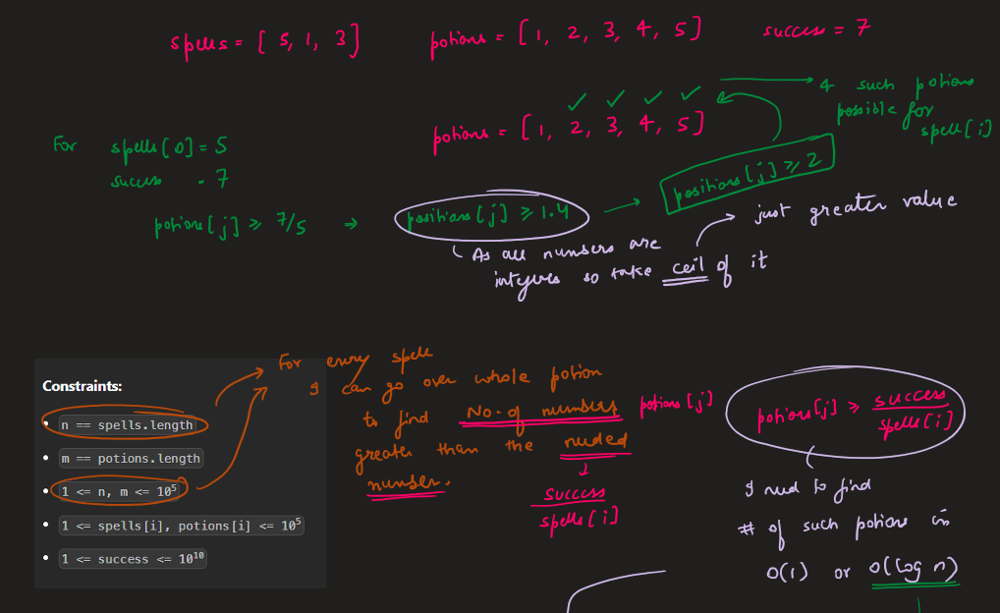 spells = [ 5, 1, 3]
potions = [1, 2, 3, 4, 5]
success = 7
4 such potions
possible for
spell[i]
potions = [1, 2, 3, 4, 5]
For spells[0] = 5
success = 7
potions[j] ⩾ 7/5 →
positions[j] ⩾ 1.4 →
positions[j] ⩾ 2
just greater value
As all numbers are
integers so take ceil of it
Constraints:
• n == spells.length
• m == potions.length
• 1 <= n, m <= 10⁵
• 1 <= spells[i], potions[i] <= 10⁵
• 1 <= success <= 10¹⁰
For every spell
I can go over whole potion
to find No. of numbers
greater than the needed
number.
success
spells[i]
potions[j]
potions[j] ⩾ success
spells[i]
I need to find
# of such potions in
O(1) or O(log n)